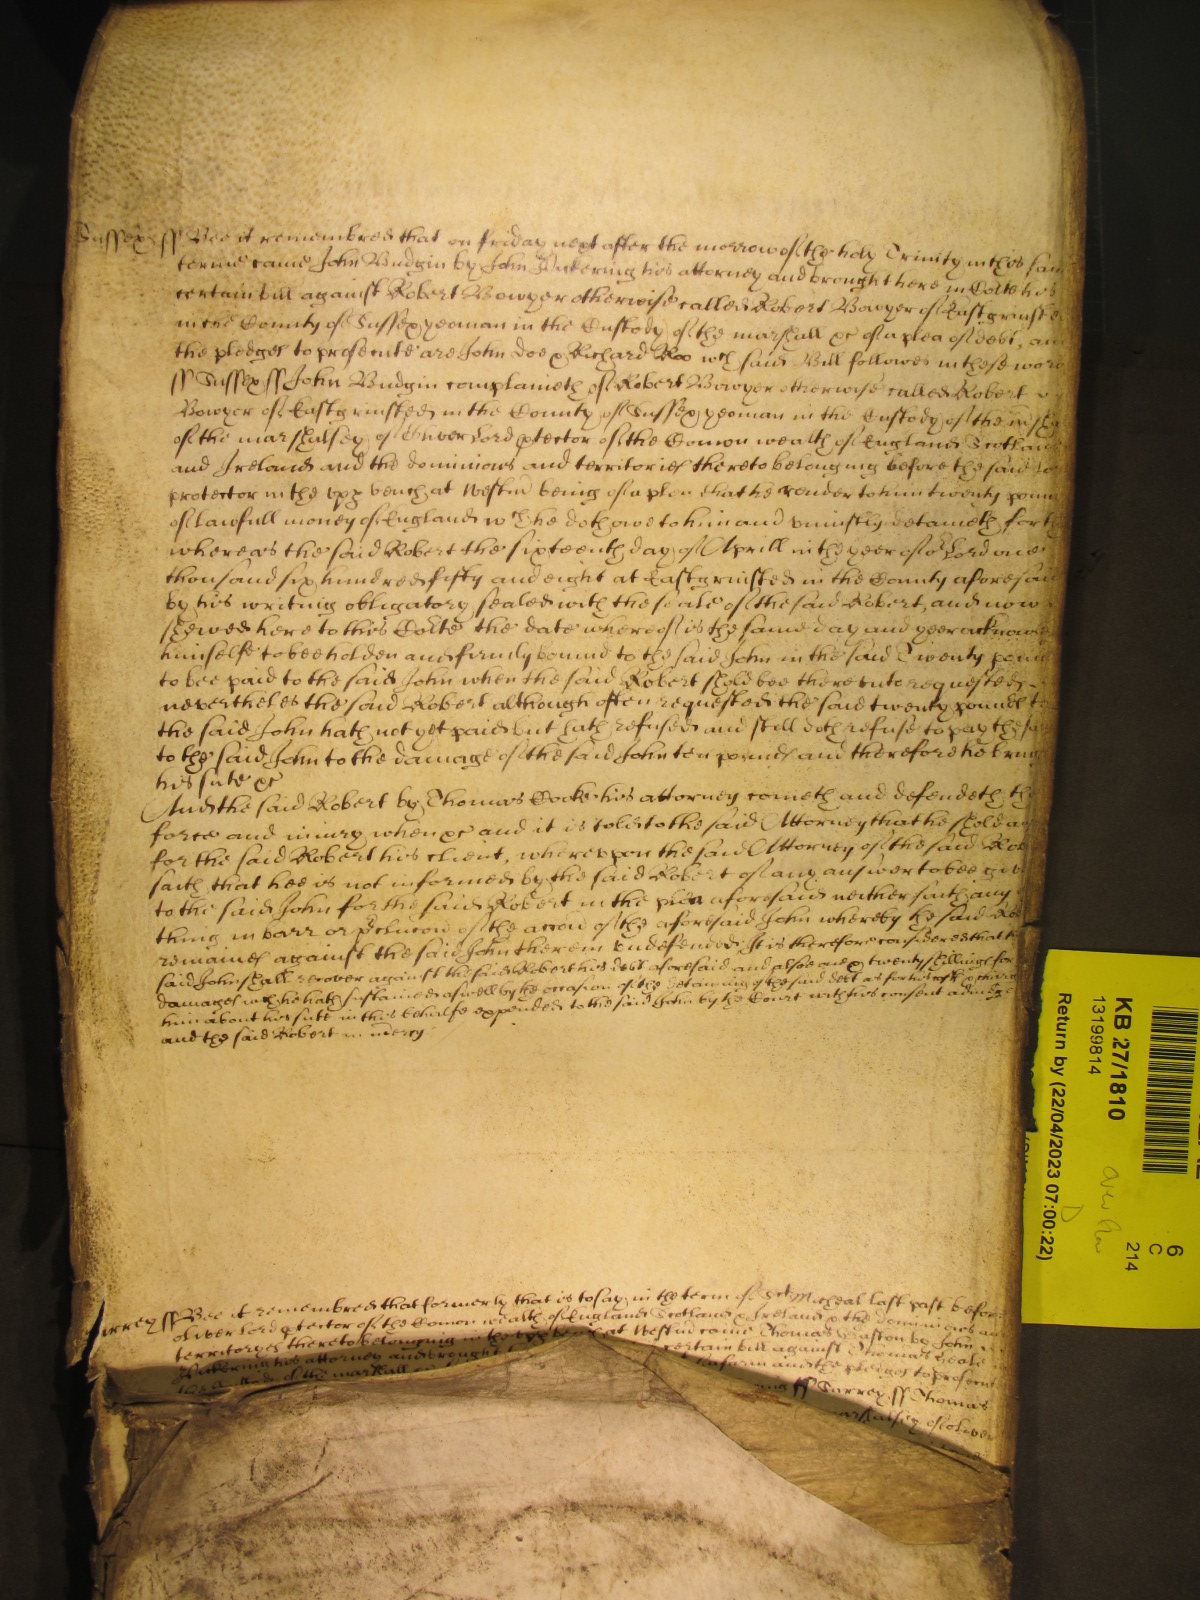 Sussex ss Bee it remembred that on friday next after the morrow of the holy Trinity in this sam
terme came John Budgin by John Pickering his attorney and brought here in Co'te his
certain bill against Robert Bowyer otherwise called Robert Bowyer of Eastgrinsted
in the County of Sussex yeoman in the Custody of the marshall &c of a plea of debt, and
the pledges to prosecute are John Doe & Richard Roo wch said Bill followes in these word
ss Sussex ss John Budgin complaineth of Robert Bowyer otherwise called Robert
Bowyer of Eastgrinsted in the County of Sussex yeoman in the Custody of the
of the marshalsey of Oliver Lord p'tector of the Comon wealth of England Scotland
and Ireland and the dominions and territories thereto belonging before the said Lo
protector in the upp bench at Westm' being of a plea that he render to him twenty poun
of lawfull money of England wch he doth owe to him and uniustly detaineth for th
whereas the said Robert the sixteenth day of Aprill in the yeer of or Lord one
thousand six hundred fifty and eight at Eastgrinsted in the County aforesaid
by his writing obligatory sealed with the seale of the said Robert, and now
shewed here to this Co'te the date whereof is the same day and yeer acknowle
himselfe to bee holden and firmly bound to the said John in the said Twenty poun
to bee paid to the said John when the said Robert shold bee thereunto requested
neverthelesse the said Robert although often requested the said twenty pounds to
the said John hath not yet paid but hath refused and still doth refuse to pay the sa
to the said John to the damage of the said John ten pounds and therefore he bring
his sute &c
And the said Robert by Thomas Cocke his attorney cometh and defendeth the
force and iniury when &c and it is told to the said Attorney that he shold an
for the said Robert his client, whereupon the said Attorney of the said Rob
saith that hee is not informed by the said Robert of any answer to bee giv
to the said John for the said Robert in the plea aforesaid neither saith any
thing in barr or p'clucon of the accon of the aforesaid John whereby he said Rob
remaines against the said John therein undefended, It is therefore considered that t
said John shall recover against the said Robert his debt aforesaid and alsoe one & twenty shillings for
damages wch he hath sustained aswell by the occasion of the detaining of the said debt as for his costs &
him about his sute in this behalfe expended to the said John by the Court with his consent adiudge
and the said Robert in mercy
Surrey ss Bee it remembred that formerly that is to say in the term of Sct Micheal last past before
Oliver Lord p'tector of the Comon wealth of England Scotland & Ireland & the dominions an
territoryes thereto belonging in the upp bench at Westm' came Thomas by John
Pickering his attorney and brought certain bill against Thomas
of the marshall and the pledges to prosecut
ss Surrey ss Thomas
marshalsey of Oliver
KB 27/1810
13199814
Return by (22/04/2023 07:00:22)
6
C
214
D